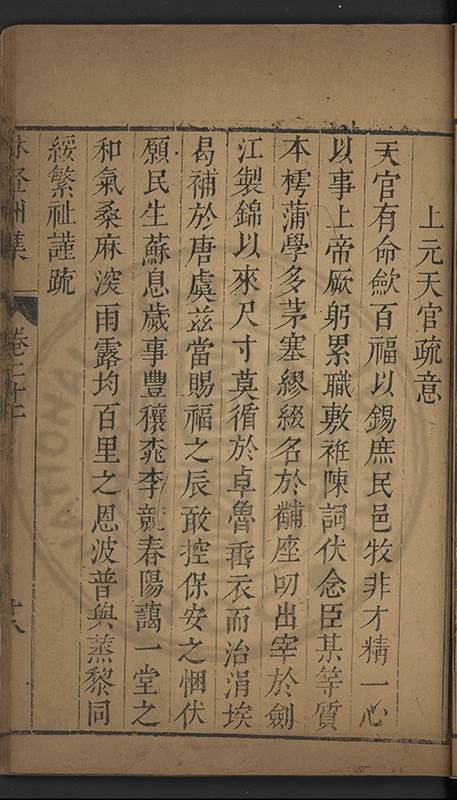 上元天官疏意
天官有命歛百福以錫庶民邑牧非才精一心
以事上帝厥躬累職敷袵陳詞伏念臣某等質
本樗蒲學多茅塞繆綴名於黼座叨出宰於劍
江製錦以來尺寸莫循於卓魯垂衣而治涓埃
曷補於唐虞兹當賜福之辰敢控保安之悃伏
願民生蘇息歲事豐穰桃李競春陽藹一堂之
和氣桑麻深雨露均百里之恩波普與蒸黎同
綏繁祉謹疏
林登州集 卷二十二 十八